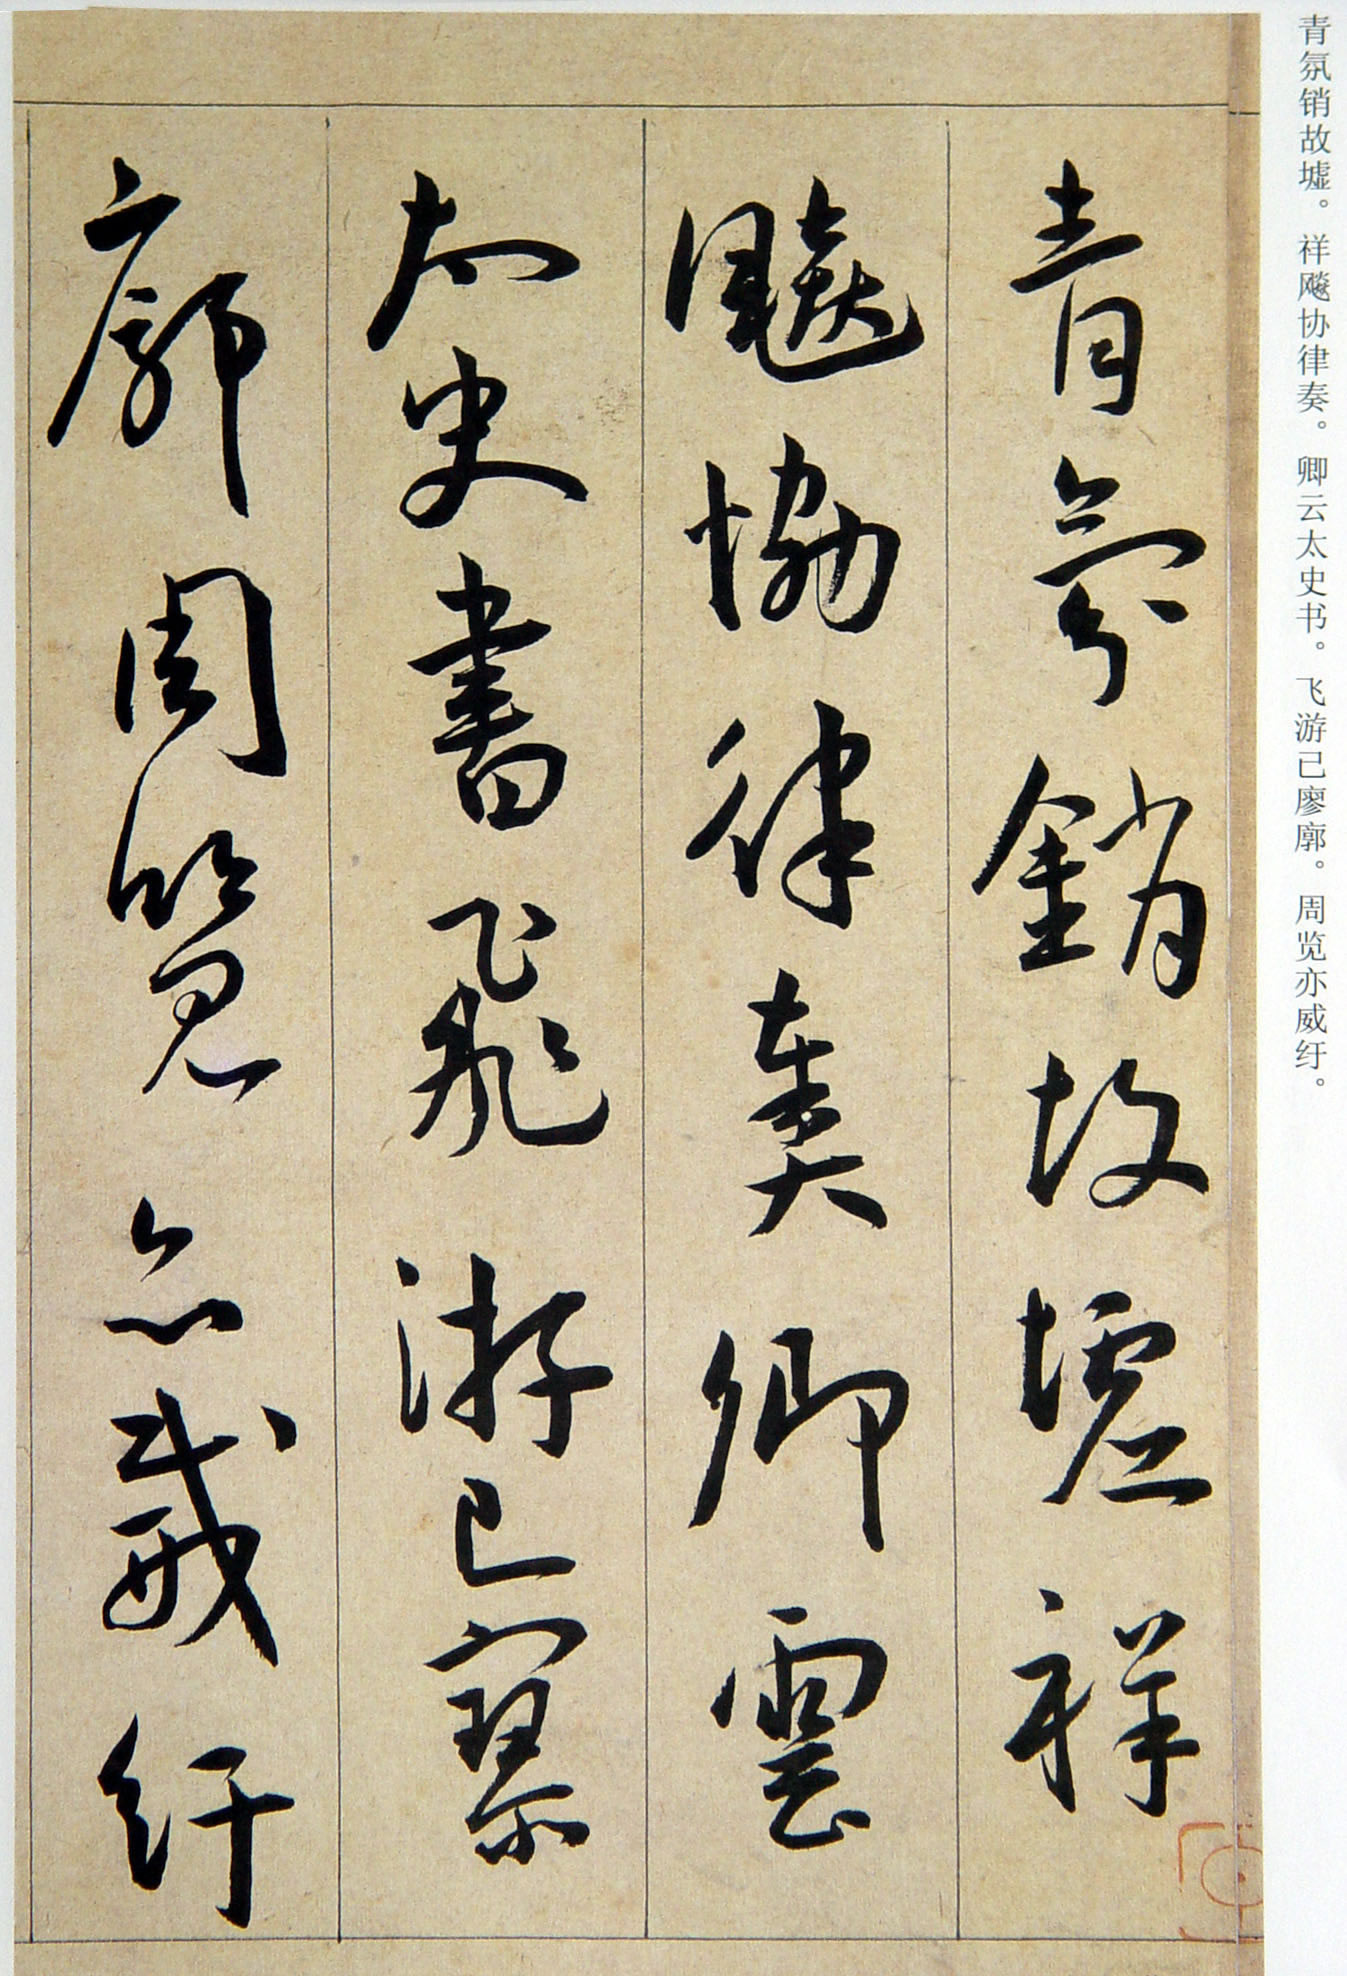 青氛销故墟。祥飚协律奏。卿云太史书。飞游已廖廓。周览亦威纡。
青氛銷故墟祥
飈協律奏卿雲
太史書飛游已寥
廓周覽亦威紆